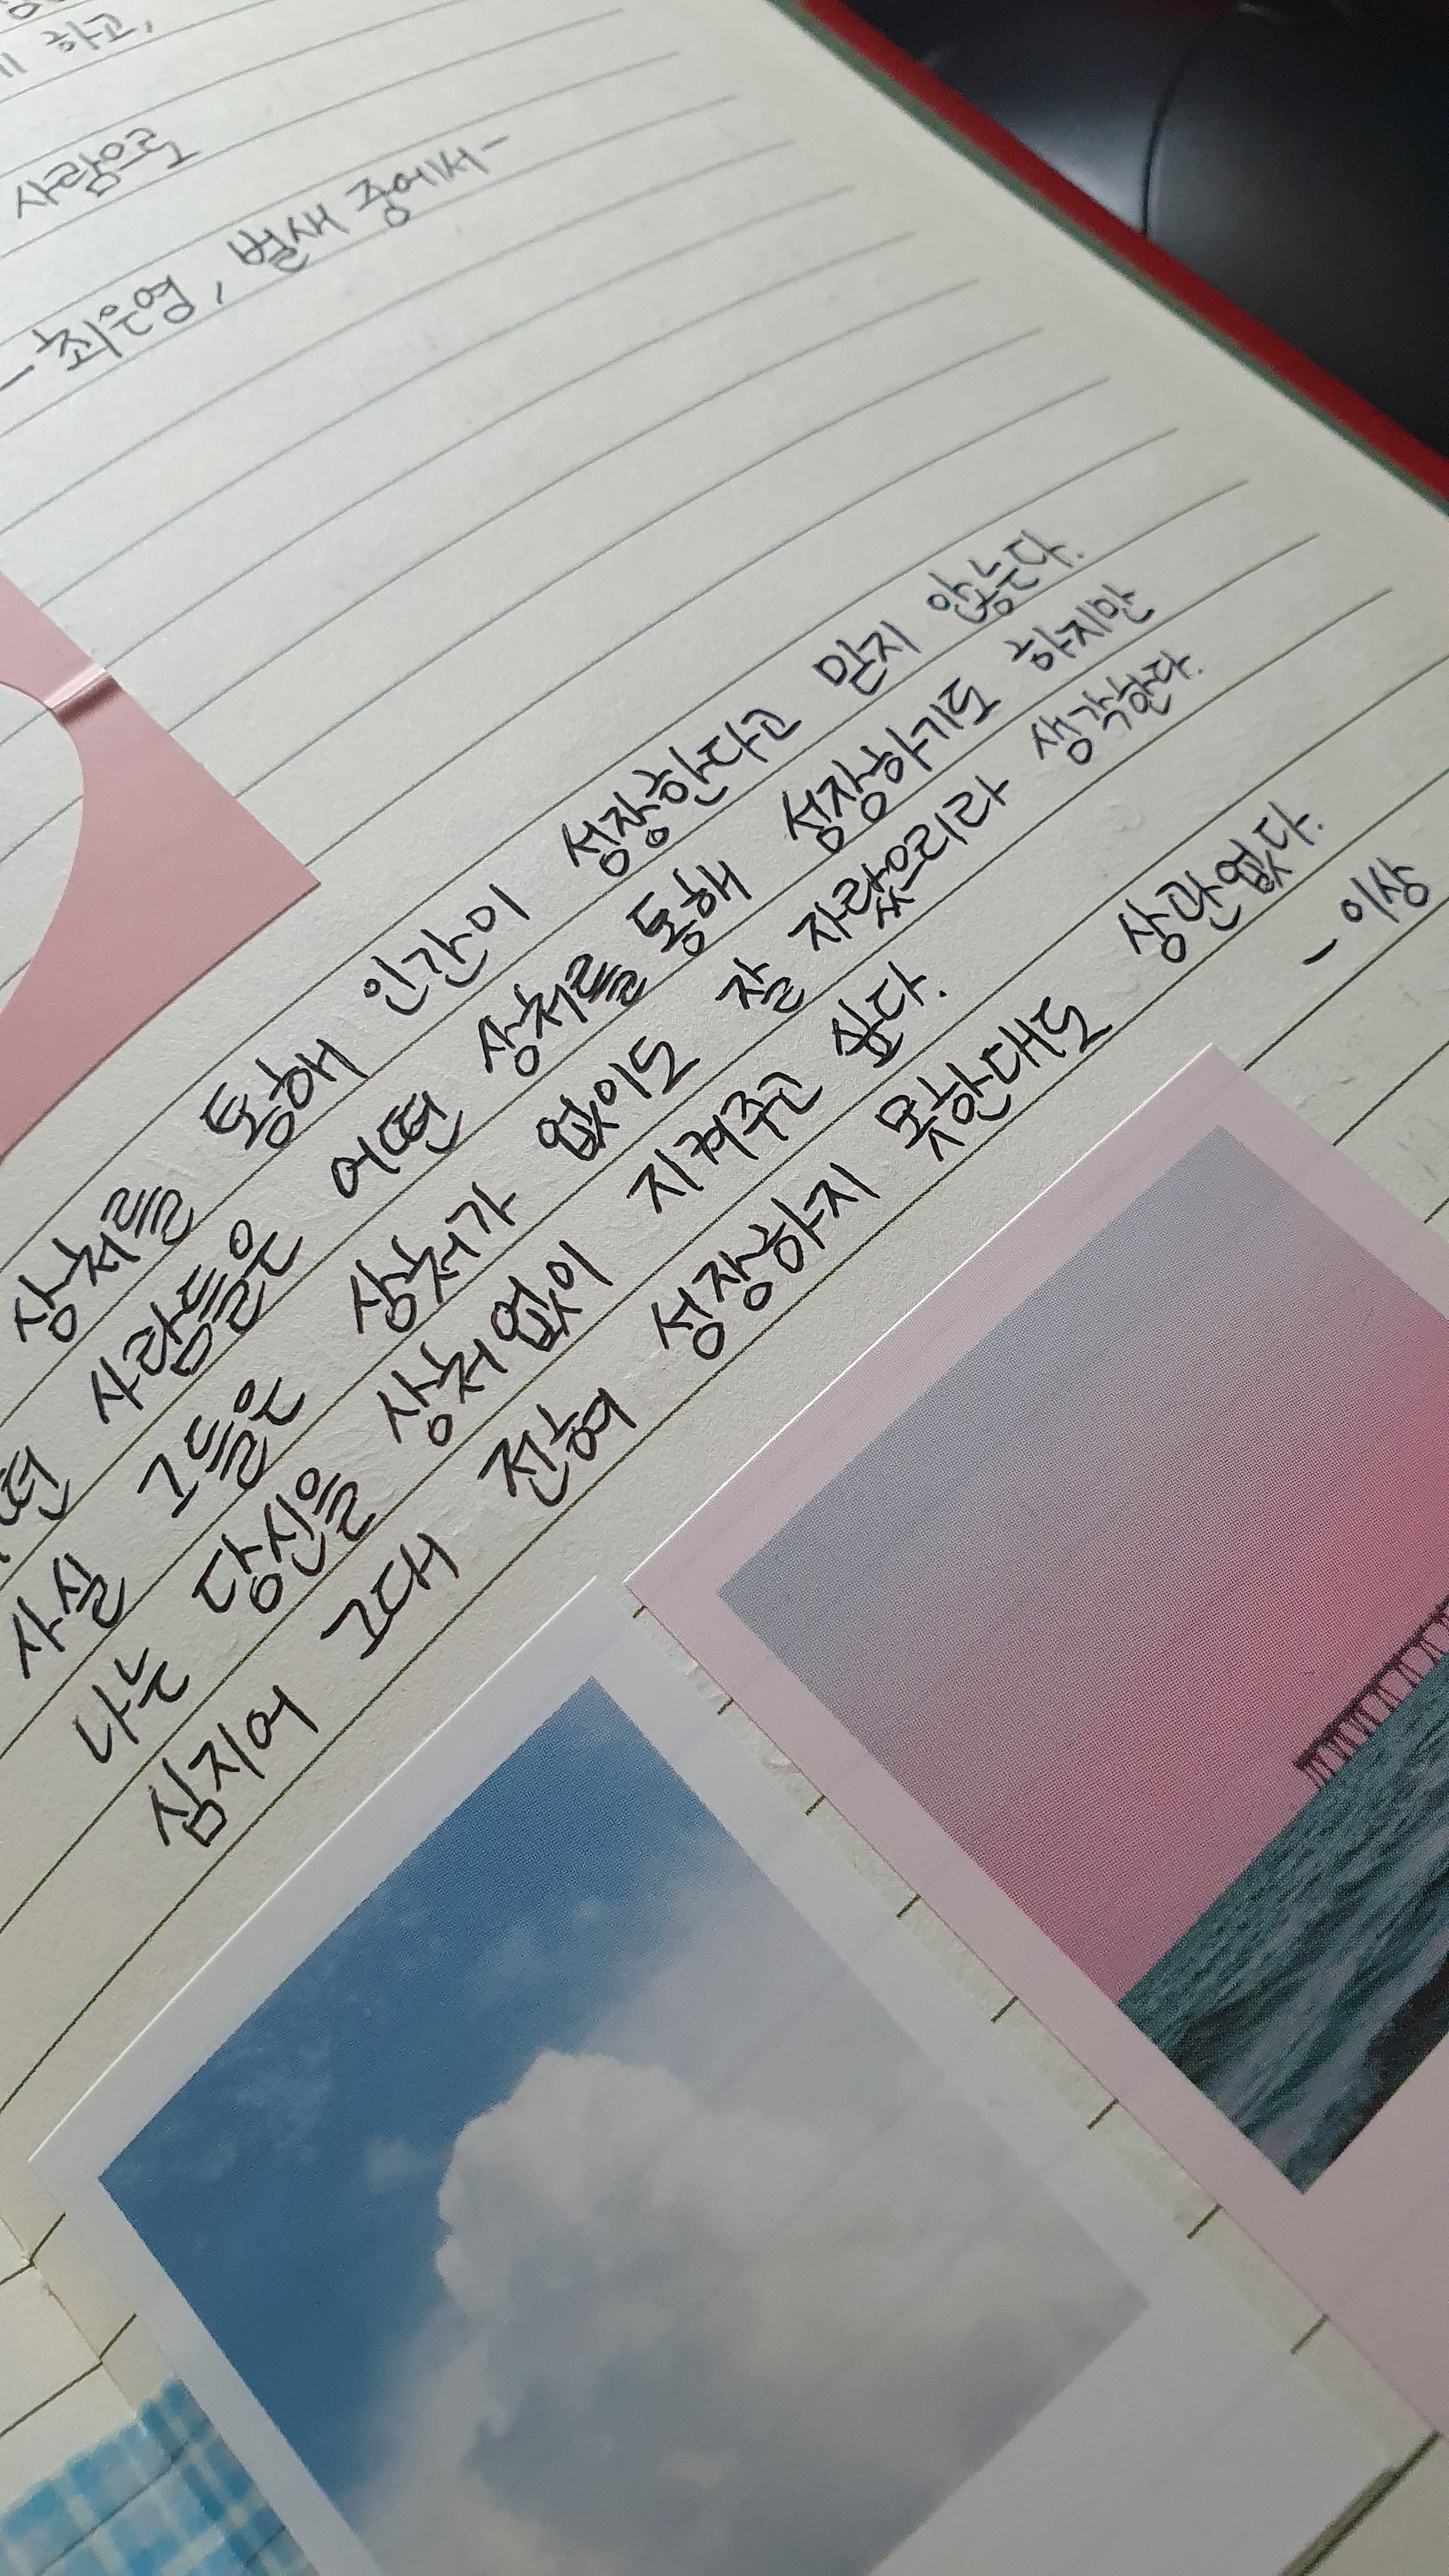 하고,
사람으로
- 최은영, 벌새 중에서-
상처를 통해 인간이 성장한다고 믿지 않는다.
사람들은 어떤 상처를 통해 성장하기도 하지만
사실 그들은 상처가 없이도 잘 자랐으리라 생각한다.
나는 당신을 상처 없이 지켜주고 싶다.
심지어 그대 전혀 성장하지 못한대도 상관없다.
- 이상